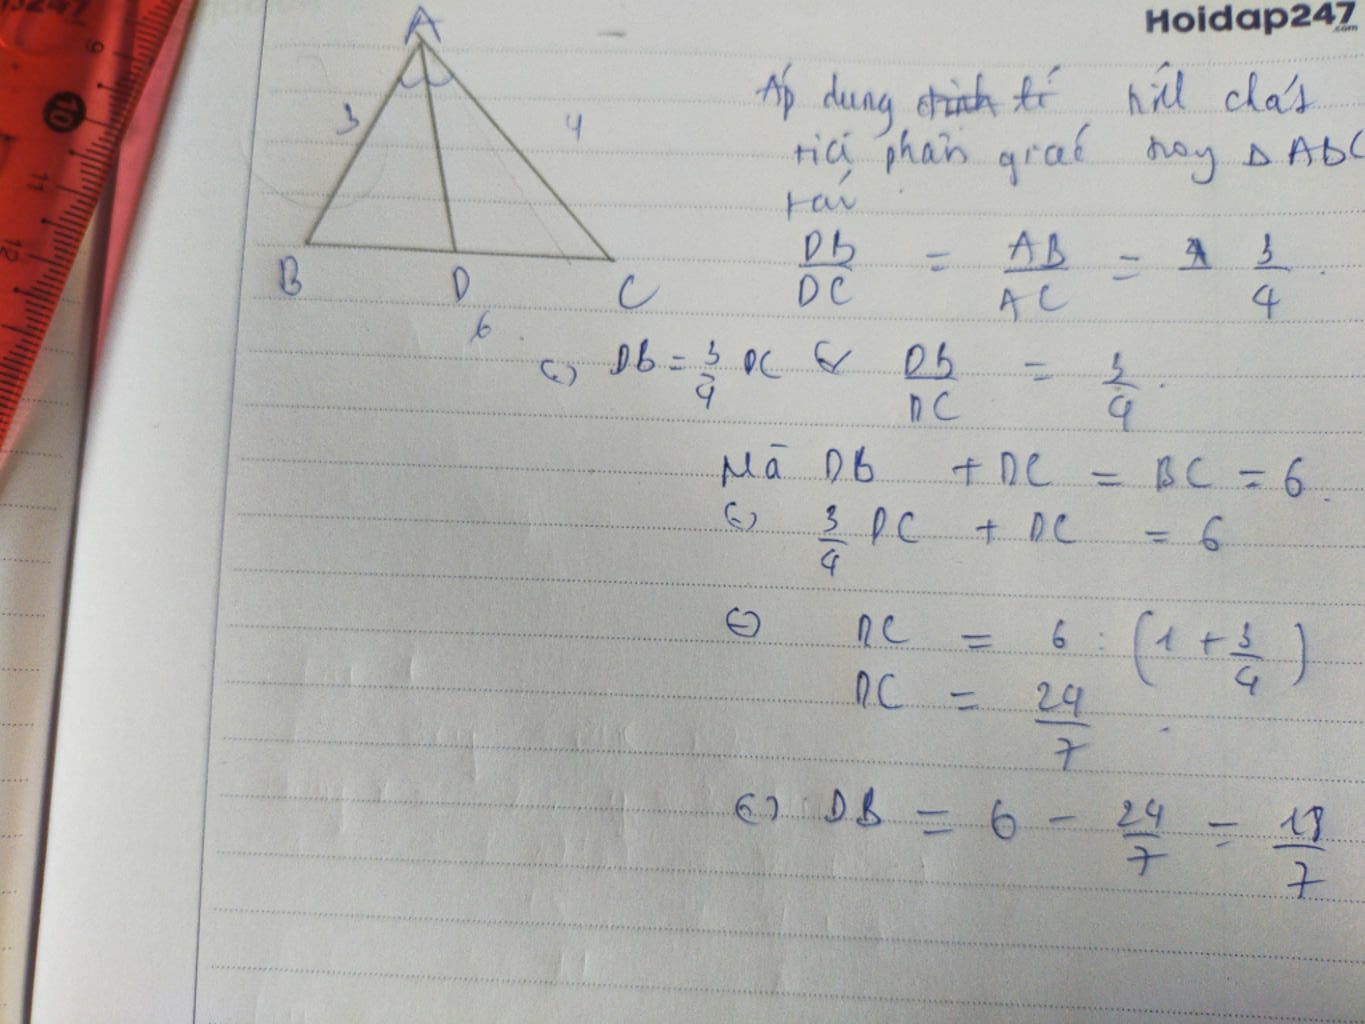 Hoidap247
.com
9
10
11
12
A
3
4
B
D
C
6
Áp dụng tính chất
phân giác trong Δ ABC
DB/DC = AB/AC = 3/4
<=> DB = 3/4 DC <=> DB/DC = 3/4.
Mà DB + DC = BC = 6.
<=> 3/4 DC + DC = 6
<=> DC = 6 : (1 + 3/4)
DC = 24/7.
<=> DB = 6 - 24/7 = 18/7